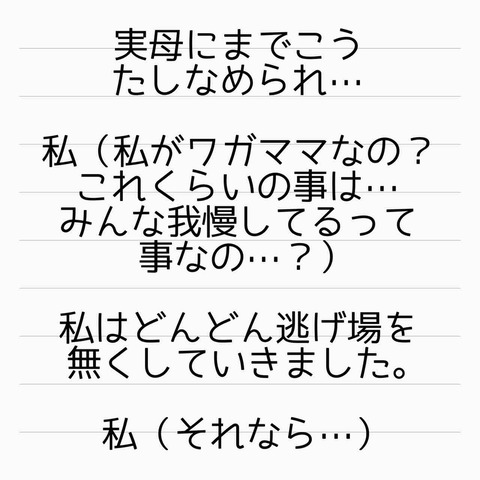 実母にまでこう
たしなめられ…
私（私がワガママなの？
これくらいの事は…
みんな我慢してるって
事なの…？）
私はどんどん逃げ場を
無くしていきました。
私（それなら…）